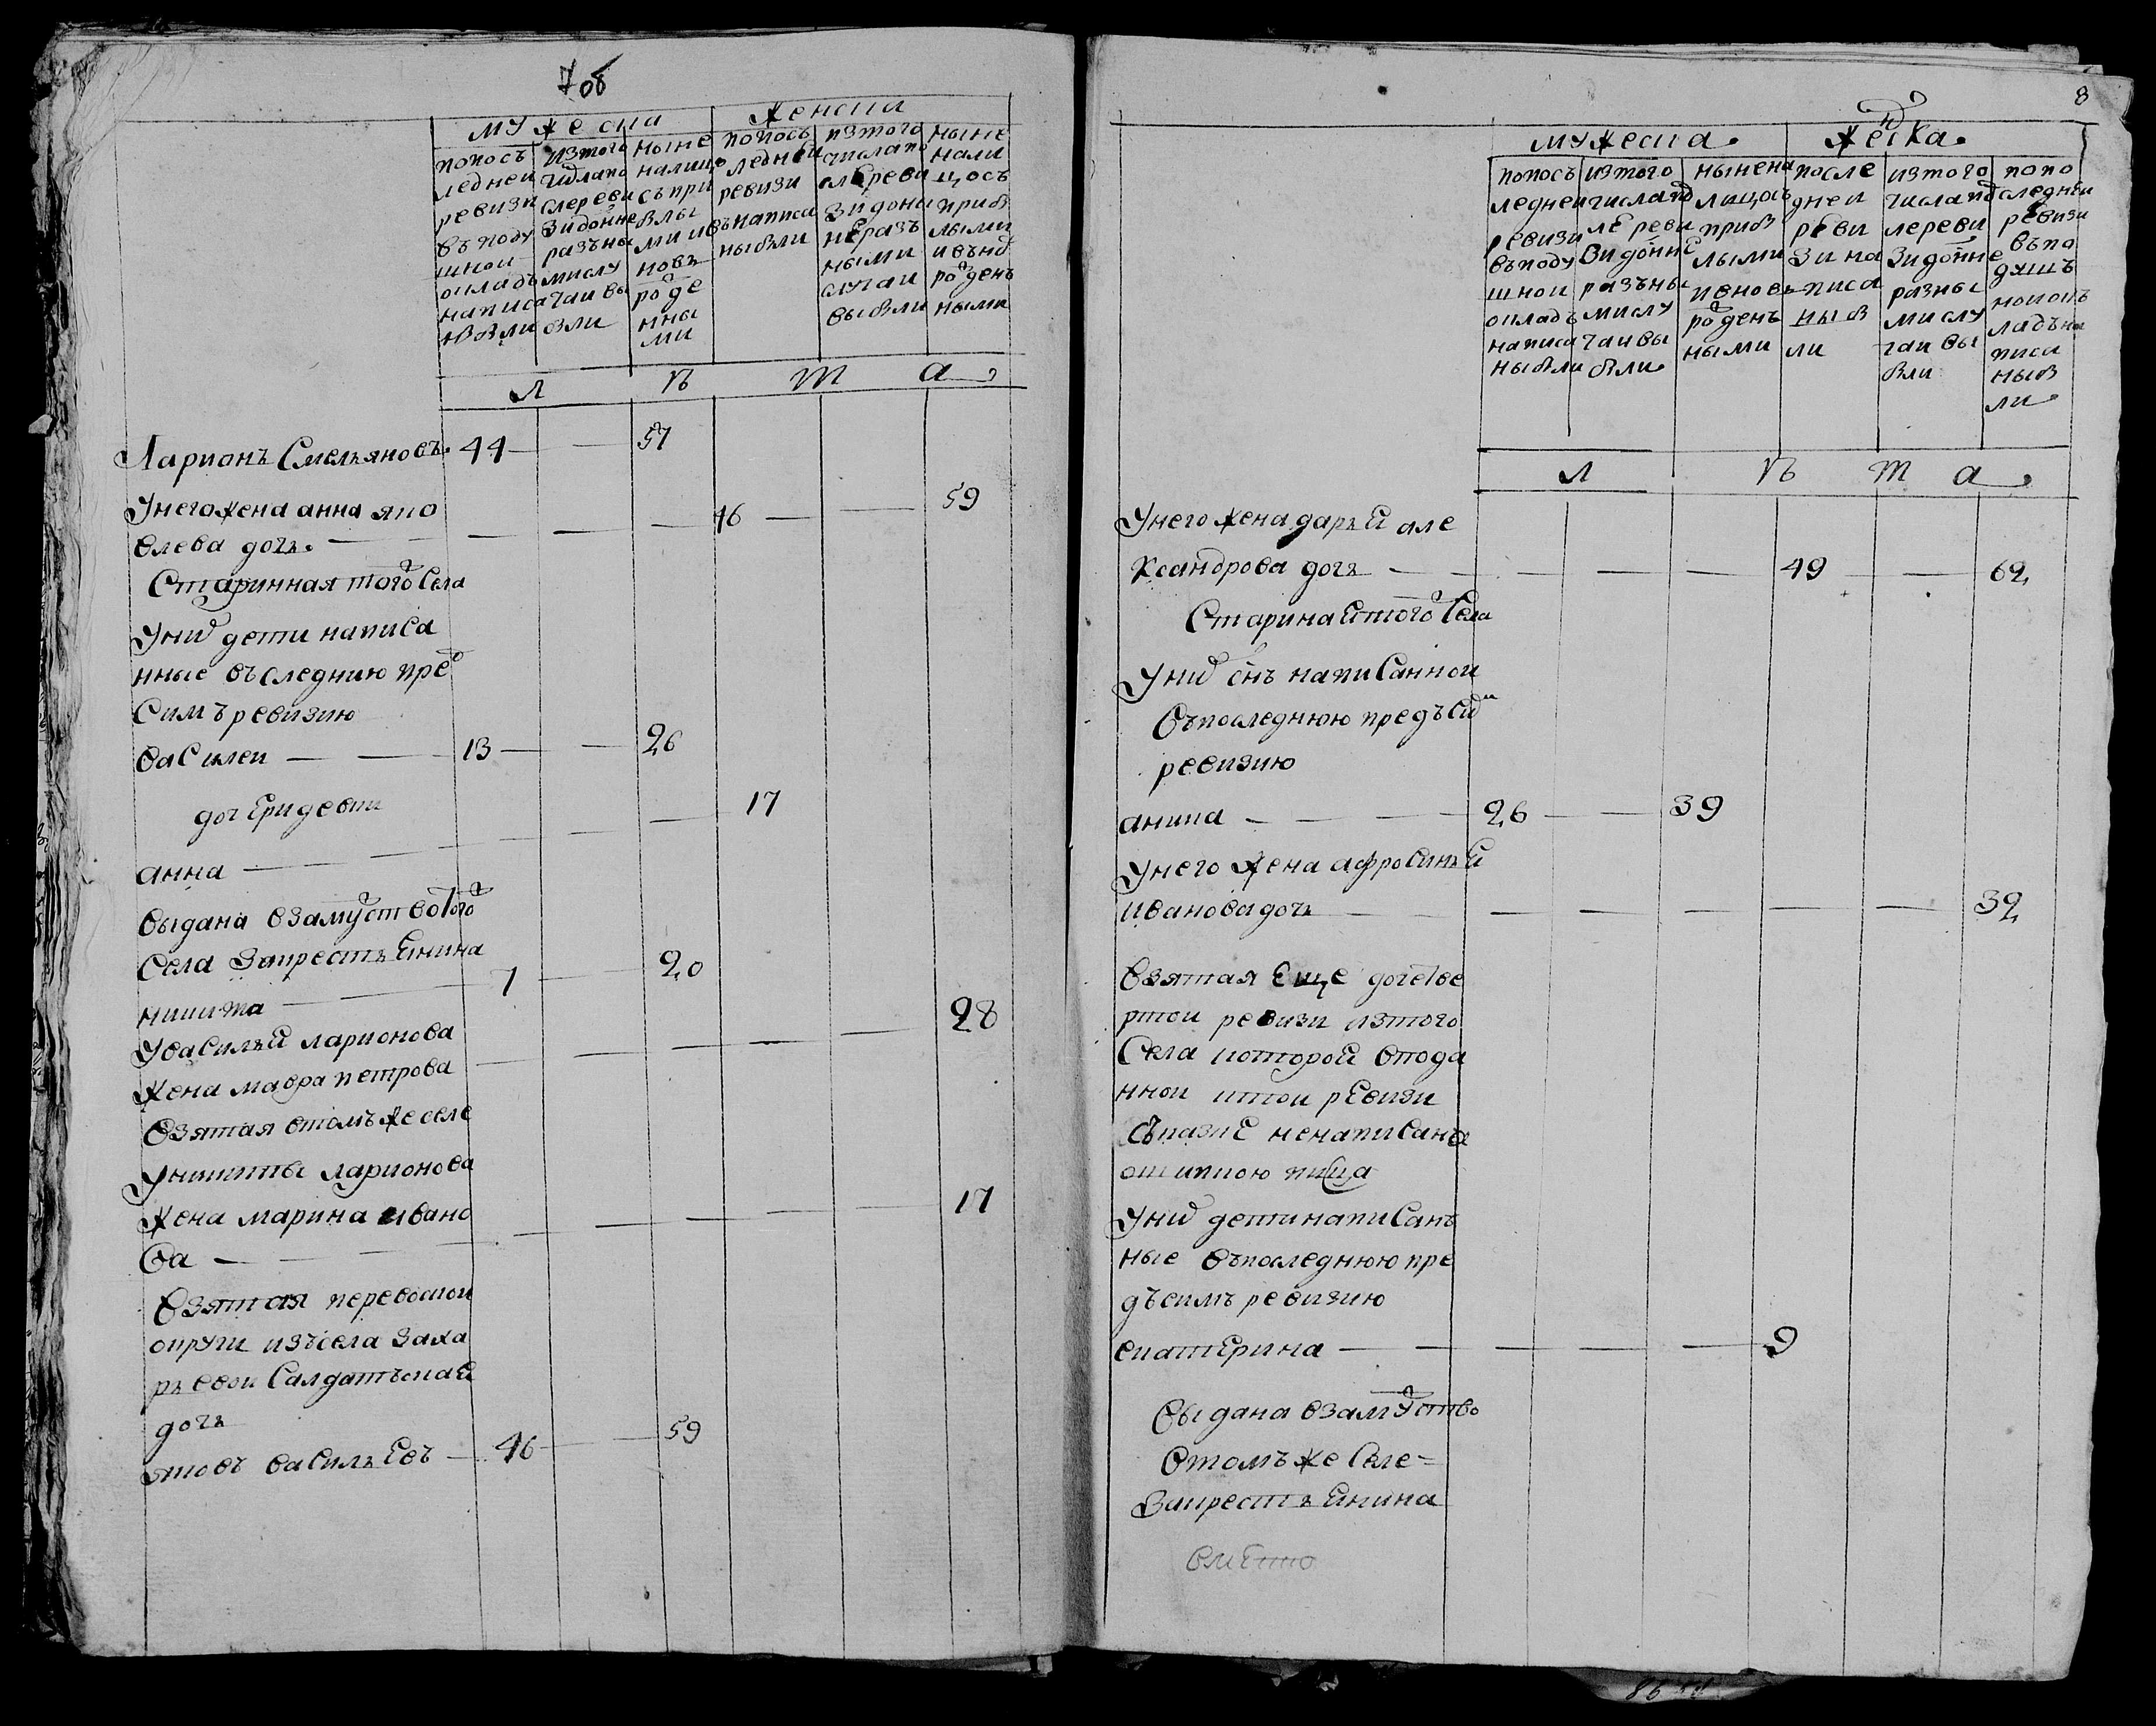 7 об
мужеска
женска
попосъ
ледней
ревизи
въ поду
шной
окладъ
написа
ны были
изтого
числапо
слереви
зидонне
разны
мислу
чаи вы
были
ныне
налицо
съпри
былы
ми и
новъ
рожде
нны
ми
попосъ
ледней
ревизи
въ написа
ны были
изтого
числапо
слереви
зидоны
неразъ
ными
случаи
выбыли
ныне
нали
цось
приб
лыми
ивьно
рожденъ
ными
л ѣ т а
Ларионъ Смельяновъ 44 57
Унего жена анна яко
влева дочь 46 59
Старинная того села
Уних дети написа
нные въ следнию пред
симъ ревизию
василеи 13 26
дочери девки
анна 17
выдана взамужство того
села закрестьЕнина
никита 7 20
Увасилья ларионова
жена мавра петрова 28
взятая втомъ же селе
Уникиты ларионова
жена марина ивано
ва 17
взятая перевоскои
округи изъсела заха
рьевои салдатъскаЕ
дочь
яковъ васильЕвъ 46 59
8
мужеска
женска
попосъ
ледней
ревизи
въподу
шнои
окладъ
написа
ны были
изтого
числапо
ле реви
зидонне
разъны
мислу
чаи вы
были
нынена
лицось
приб
лыми
ивновь
рожденъ
ными
после
днеи
реви
зи на
писа
ны б
ли
изтого
числапо
лереви
зидонне
разны
мислу
чаи вы
были
попо
следнеи
ревизи
въпо
душъ
нои окъ
ладъ на
писа
ны б
ли
л ѣ т а
Унего жена дарьЕ але
ксандрова дочь 49 62
СтаринаЕ того села
Уних снъ написаннои
въпоследнюю предъсим
ревизию
аника 26 39
Унего жена афросиньЕ
иванова дочь 32
взятая Еще дочетве
ртои ревизи изтого
села которой впода
ннои ктои рЕвизи
съказкЕ ненаписана
ошипкою писца
Уних детинаписанъ
ные въпоследнюю пре
дъсимъ ревизию
екатЕрина 9
выдана взамужство
втомъ же селе
закрестьЕнина
вмЕсто